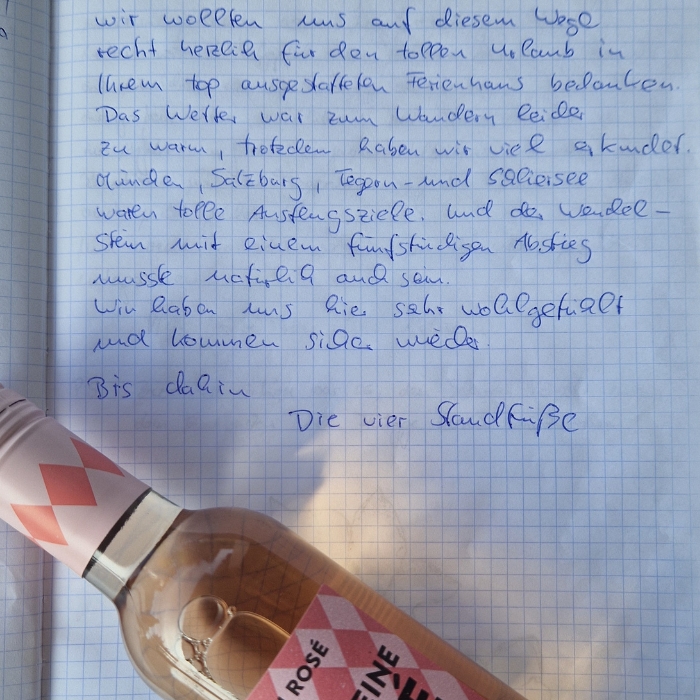 wir wollten uns auf diesem Wege
recht herzlich für den tollen Urlaub in
Ihrem top ausgestatteten Ferienhaus bedanken.
Das Wetter war zum Wandern leider
zu warm, trotzdem haben wir viel erkundet.
München, Salzburg, Tegern- und Schliersee
waren tolle Ausflugsziele. Und der Wendel-
stein mit einem fünfstündigen Abstieg
musste natürlich auch sein.
Wir haben uns hier sehr wohlgefühlt
und kommen sicher wieder.
Bis dahin
Die vier Standfüße
ROSÉ
EINE